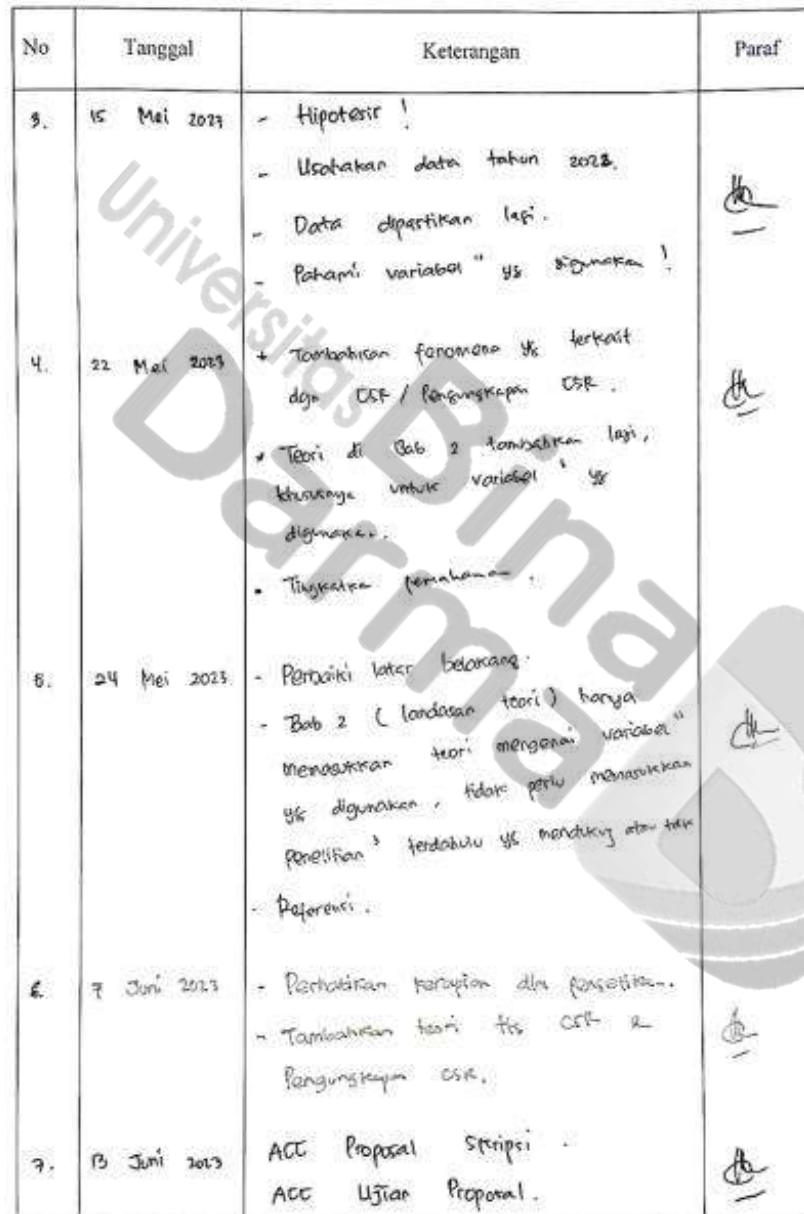 No Tanggal Keterangan Paraf
3. 15 Mei 2023 - Hipotesis !
- Usahakan data tahun 2022.
- Data dipastikan lagi.
- Pahami variabel " yg digunakan !
4. 22 Mei 2023 + Tambahkan fenomena yg terkait
dgn CSR / Pengungkapan CSR.
* Teori di Bab 2 tambahkan lagi,
khususnya untuk variabel " yg
digunakan.
• Tingkatkan pemahaman.
5. 24 Mei 2023 - Perbaiki latar belakang.
- Bab 2 ( landasan teori ) hanya
memasukkan teori mengenai variabel "
yg digunakan, tidak perlu memasukkan
penelitian " terdahulu yg mendukung atau tdk
- Referensi.
6. 7 Juni 2023 - Perhatikan kerapian dlm pengetikan.
- Tambahkan teori ttg CSR &
Pengungkapan CSR.
7. 13 Juni 2023 ACC Proposal Skripsi.
ACC Ujian Proposal.
Universitas
Bina
Darma